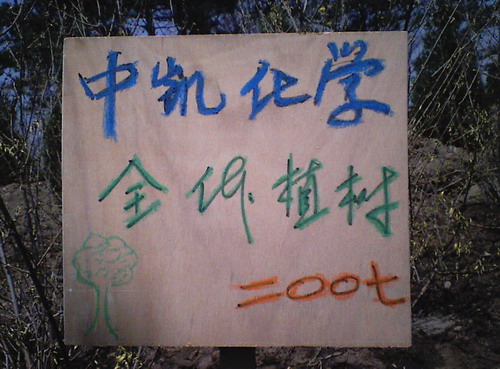 中凯化学
全体植树
二〇〇七